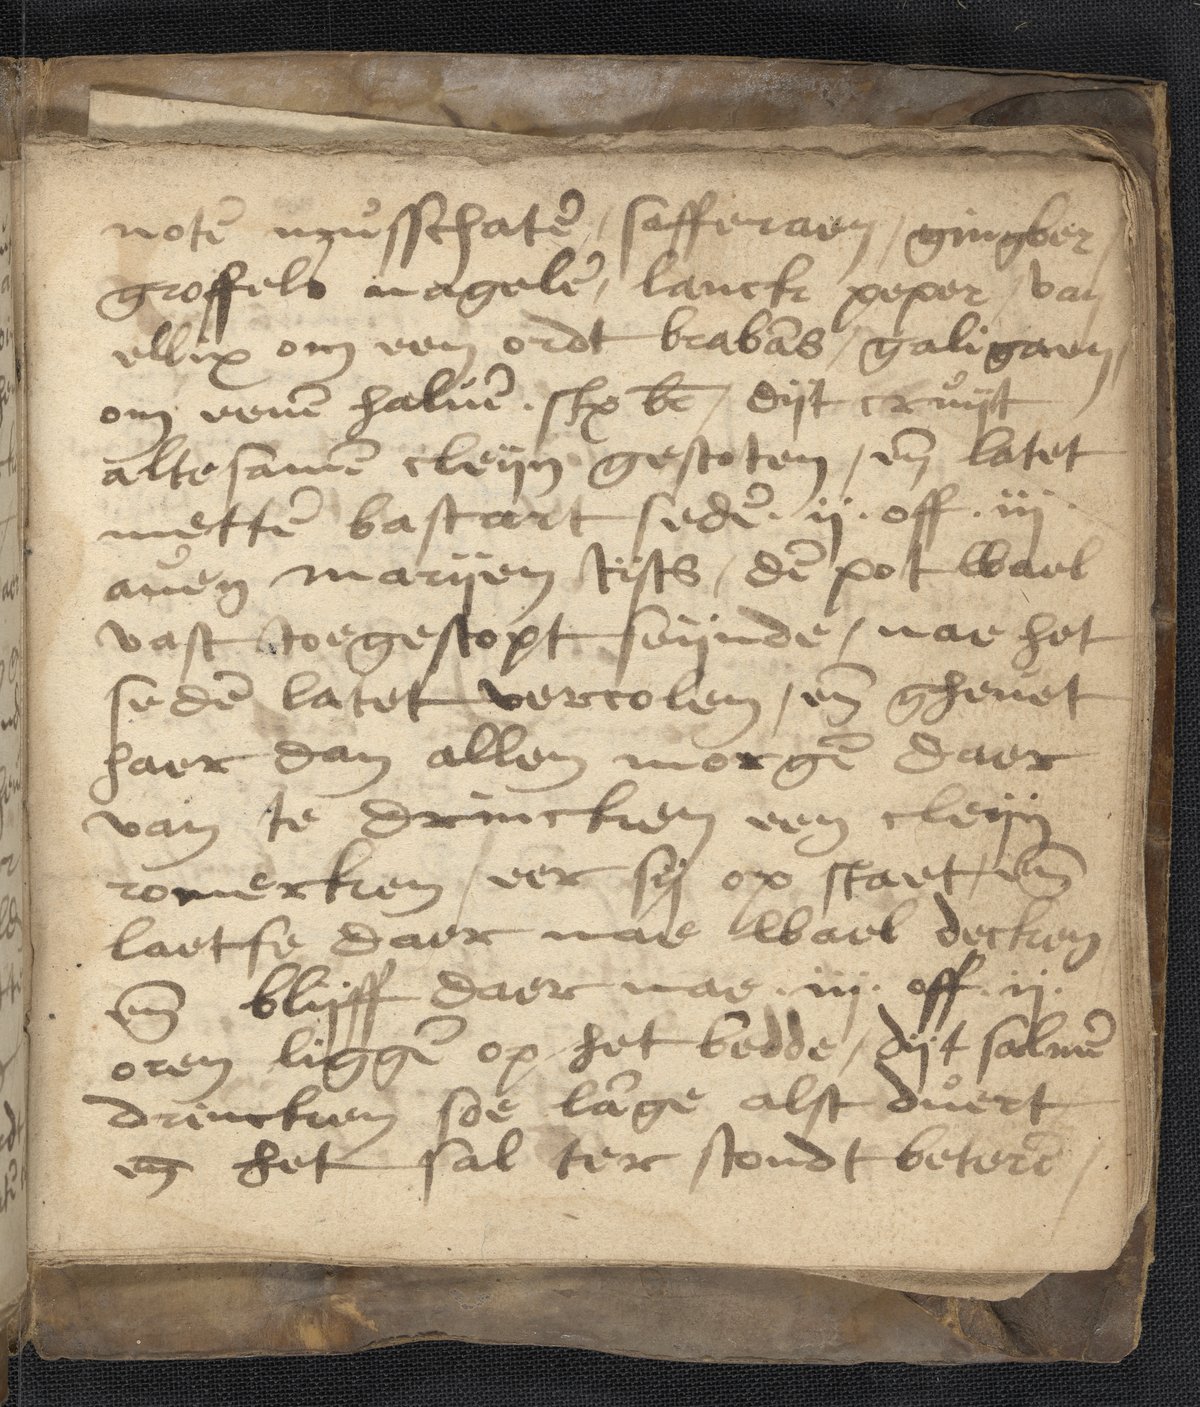 notē musschatē / safferaen / gingber /
groffels nagelē / lanck peper / van
ellix om een ordt brabās / galigaen /
om eenē haluē . stx bē / dijt cruijt
altesamē cleijn gestoten / en̄ latet
mettē bastart sedē . ij . off . iij .
auen marijen tijts / dē pot wael
vast toegestopt sijnde / nae het
sedē latet vercolen / en̄ gheuet
haer dan allen morgē daer
van te drincken een cleijn
romerken / eer sij op staet / en̄
laetse daer nae wael decken
en̄ blijff daer nae . iij . off . ij .
oren liggē op het bedde / dijt salmē
drincken soe lāge alst duert
en̄ het sal ter stondt beterē /